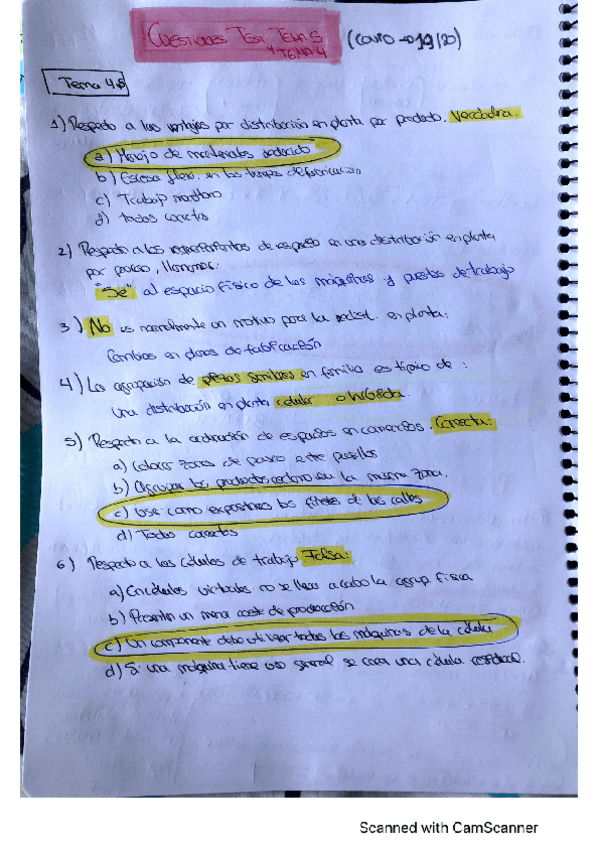 CUESTIONES TEST TEMA 5
Y TEMA 4
(COVID - 19/20)
Tema 4.5
1) Respecto a las ventajas por distribución en planta por producto. Verdadera.
a) Manejo de materiales reducido
b) Escasa flexi. en los tiempos de fabricación
c) Trabajo monótono
d) todas correctas
2) Respecto a los requerimientos de espacio en una distribución en planta
por proceso, llamamos:
"Se" al espacio físico de las máquinas y puestos de trabajo
3) No es normalmente un motivo para la redist. en planta:
Cambios en planes de fabricación
4) La agrupación de piezas similares en familia es típico de :
Una distribución en planta celular o híbrida.
5) Respecto a la ordenación de espacios en comercios. Correcta:
a) Colocar zonas de paseo entre pasillos
b) Agrupar los productos reclamo en la misma zona.
c) Use como expositores los finales de las calles
d) Todas correctas
6) Respecto a las células de trabajo Falsa:
a) En células virtuales no se lleva a cabo la agrup. física
b) Presentan un menor coste de producción
c) Un componente debe utilizar todas las máquinas de la célula
d) Si una máquina tiene uso general se crea una célula residual.
Scanned with CamScanner